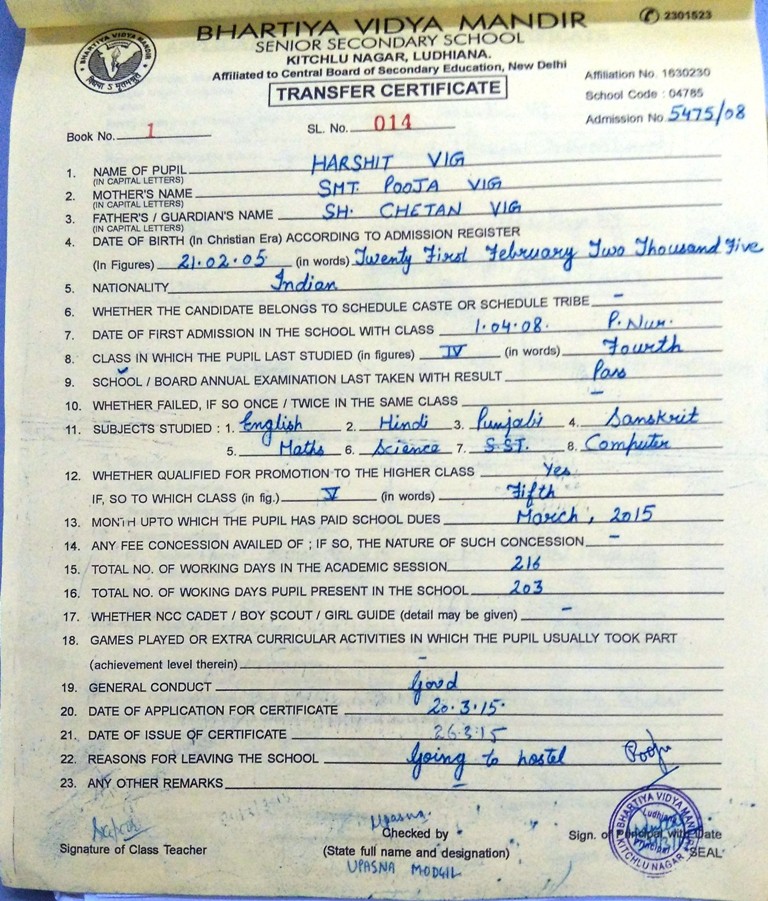 BHARTIYA VIDYA MANDIR
✆ 2301523
SENIOR SECONDARY SCHOOL
KITCHLU NAGAR, LUDHIANA.
Affiliated to Central Board of Secondary Education, New Delhi
Affiliation No. 1630230
TRANSFER CERTIFICATE
School Code : 04785
Admission No 5475/08
Book No. 1 SL. No. 014
1. NAME OF PUPIL HARSHIT VIG
(IN CAPITAL LETTERS)
2. MOTHER'S NAME SMT. POOJA VIG
(IN CAPITAL LETTERS)
3. FATHER'S / GUARDIAN'S NAME SH. CHETAN VIG
(IN CAPITAL LETTERS)
4. DATE OF BIRTH (In Christian Era) ACCORDING TO ADMISSION REGISTER
(In Figures) 21.02.05 (in words) Twenty First February Two Thousand Five
5. NATIONALITY Indian
6. WHETHER THE CANDIDATE BELONGS TO SCHEDULE CASTE OR SCHEDULE TRIBE –
7. DATE OF FIRST ADMISSION IN THE SCHOOL WITH CLASS 1.04.08. P. Nur.
8. CLASS IN WHICH THE PUPIL LAST STUDIED (in figures) IV (in words) Fourth
9. SCHOOL / BOARD ANNUAL EXAMINATION LAST TAKEN WITH RESULT Pass
10. WHETHER FAILED, IF SO ONCE / TWICE IN THE SAME CLASS –
11. SUBJECTS STUDIED : 1. English 2. Hindi 3. Punjabi 4. Sanskrit
5. Maths 6. Science 7. S.ST. 8. Computer
12. WHETHER QUALIFIED FOR PROMOTION TO THE HIGHER CLASS Yes
IF, SO TO WHICH CLASS (in fig.) V (in words) Fifth
13. MONTH UPTO WHICH THE PUPIL HAS PAID SCHOOL DUES March, 2015
14. ANY FEE CONCESSION AVAILED OF ; IF SO, THE NATURE OF SUCH CONCESSION –
15. TOTAL NO. OF WORKING DAYS IN THE ACADEMIC SESSION 216
16. TOTAL NO. OF WOKING DAYS PUPIL PRESENT IN THE SCHOOL 203
17. WHETHER NCC CADET / BOY SCOUT / GIRL GUIDE (detail may be given) –
18. GAMES PLAYED OR EXTRA CURRICULAR ACTIVITIES IN WHICH THE PUPIL USUALLY TOOK PART
(achievement level therein) –
19. GENERAL CONDUCT Good
20. DATE OF APPLICATION FOR CERTIFICATE 20.3.15.
21. DATE OF ISSUE OF CERTIFICATE 26.3.15
22. REASONS FOR LEAVING THE SCHOOL Going to hostel Pooja
23. ANY OTHER REMARKS –
Upasna
Signature of Class Teacher
Checked by
(State full name and designation)
UPASNA MODGIL
Sign. of Principal with Date
SEAL
BHARTIYA VIDYA MANDIR
Ludhiana
Principal
KITCHLU NAGAR